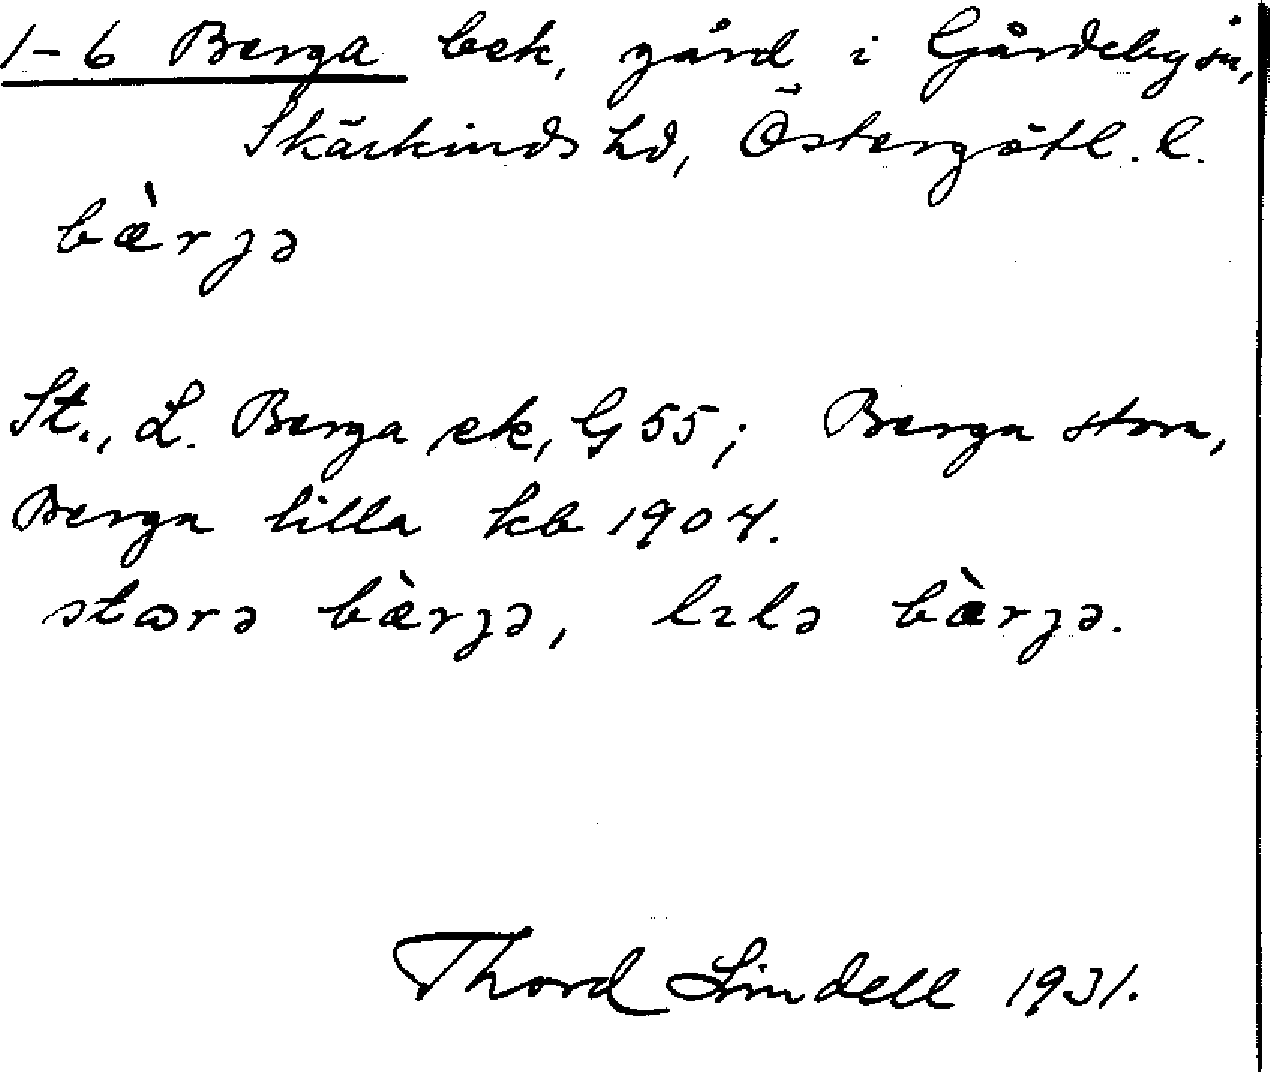 1-6 Berga bek, gård i Gårdeby sn,
Skärkinds hd, Östergötl. l.
bæ̀rjə
St., L. Berga ek, G 55; Berga stora,
Berga lilla kb 1904.
stωrə bæ̀rjə, lılə bæ̀rjə.
Thord Lindell 1931.